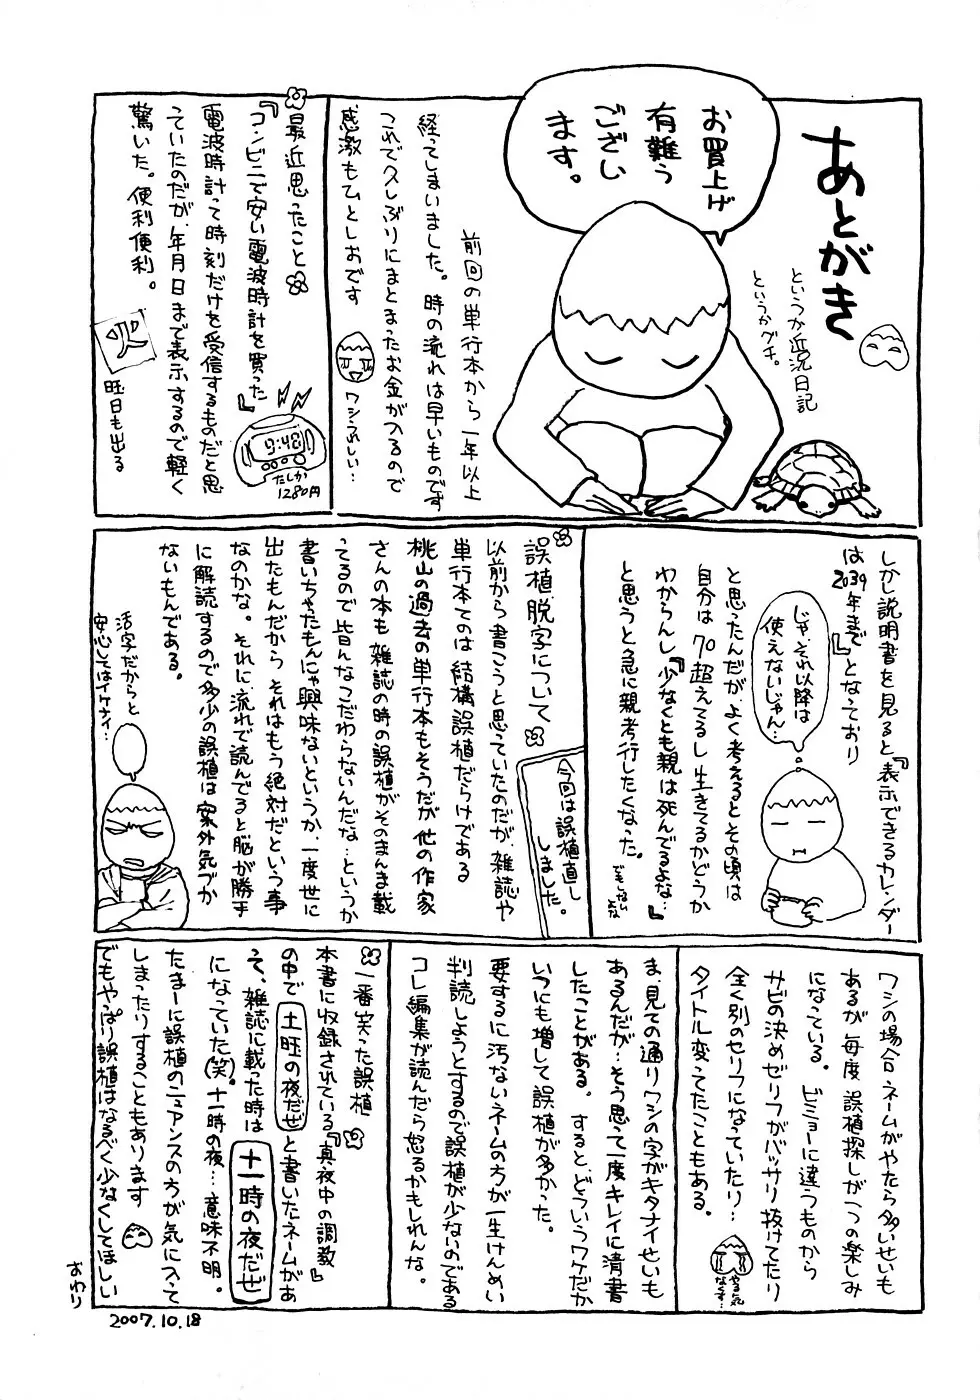 あとがき
というか近況日記
というかグチ。
お買上げ
有難う
ござい
ます。
前回の単行本から一年以上
経ってしまいました。時の流れは早いものです
これで久しぶりにまとまったお金が入るので
感激もひとしおです
ワシうれしい…
最近思ったこと
『コンビニで安い電波時計を買った』
電波時計って時刻だけを受信するものだと思
っていたのだが、年月日まで表示するので軽く
驚いた。便利便利。
9:48
たしか
1280円
火
曜日も出る
しかし説明書を見ると『表示できるカレンダー
は2039年まで』となっており
じゃ、それ以降は
使えないじゃん…
と思ったんだが、よく考えるとその頃は
自分は70超えてるし生きてるかどうか
わからんし『少なくとも親は死んでるよな』
と思うと急に親孝行したくなった。
誤植脱字について
今回は誤植直し
しました。
以前から書こうと思っていたのだが、雑誌や
単行本てのは結構誤植だらけである
桃山の過去の単行本もそうだが他の作家
さんの本も雑誌の時の誤植がそのまんま載
ってるので皆んなこだわらないんだな…というか
書いちゃたもんにゃ興味ないというか、一度世に
出たもんだからそれはもう絶対だという事
なのかな。それに流れで読んでると脳が勝手
に解読するので多少の誤植は案外気づか
ないもんである。
活字だからと
安心してはイケナイ…
ワシの場合ネームがやたら多いせいも
あるが毎度誤植探しが一つの楽しみ
になっている。ビミョーに違うものから
サビの決めゼリフがバッサリ抜けてたり
全く別のセリフになっていたり…
タイトル変ってたこともある。
やる気
なぁす…
ま、見ての通りワシの字がキタナイせいも
あるんだが…そう思って一度キレイに清書
したことがある。すると、どういうワケだか
いつにも増して誤植が多かった。
要するに汚ないネームの方が一生けんめい
判読しようとするので誤植が少ないのである
コレ編集が読んだら怒るかもしれんな。
一番笑った誤植
本書に収録されている『真夜中の調教』
の中で土旺の夜だぜと書いたネームがあ
って、雑誌に載った時は十一時の夜だぜ
になっていた(笑)。十一時の夜…意味不明。
たまーに誤植のニュアンスの方が気に入って
しまったりすることもあります
でもやっぱり誤植はなるべく少なくしてほしい
おわり
2007.10.18